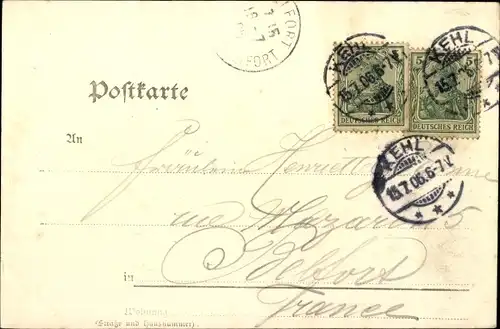 FORT
7 15
16 -7
FORT
KEHL
15.7.06.6-7V.
KEHL
15.7.06.6-7V.
5
DEUTSCHES REICH
DEUTSCHES REICH
Postkarte
KEHL
15.7.06.6-7V.
An
Fräulein Henriette
rue Mazarin 5
in Belfort
France
Wohnung
(Straße und Hausnummer)